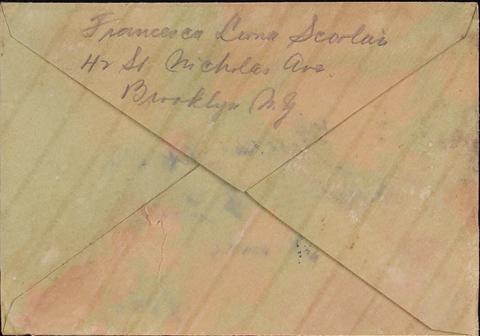 Francesca Liona Scorlai
42 St. Nicholas Ave.
Brooklyn N.Y.